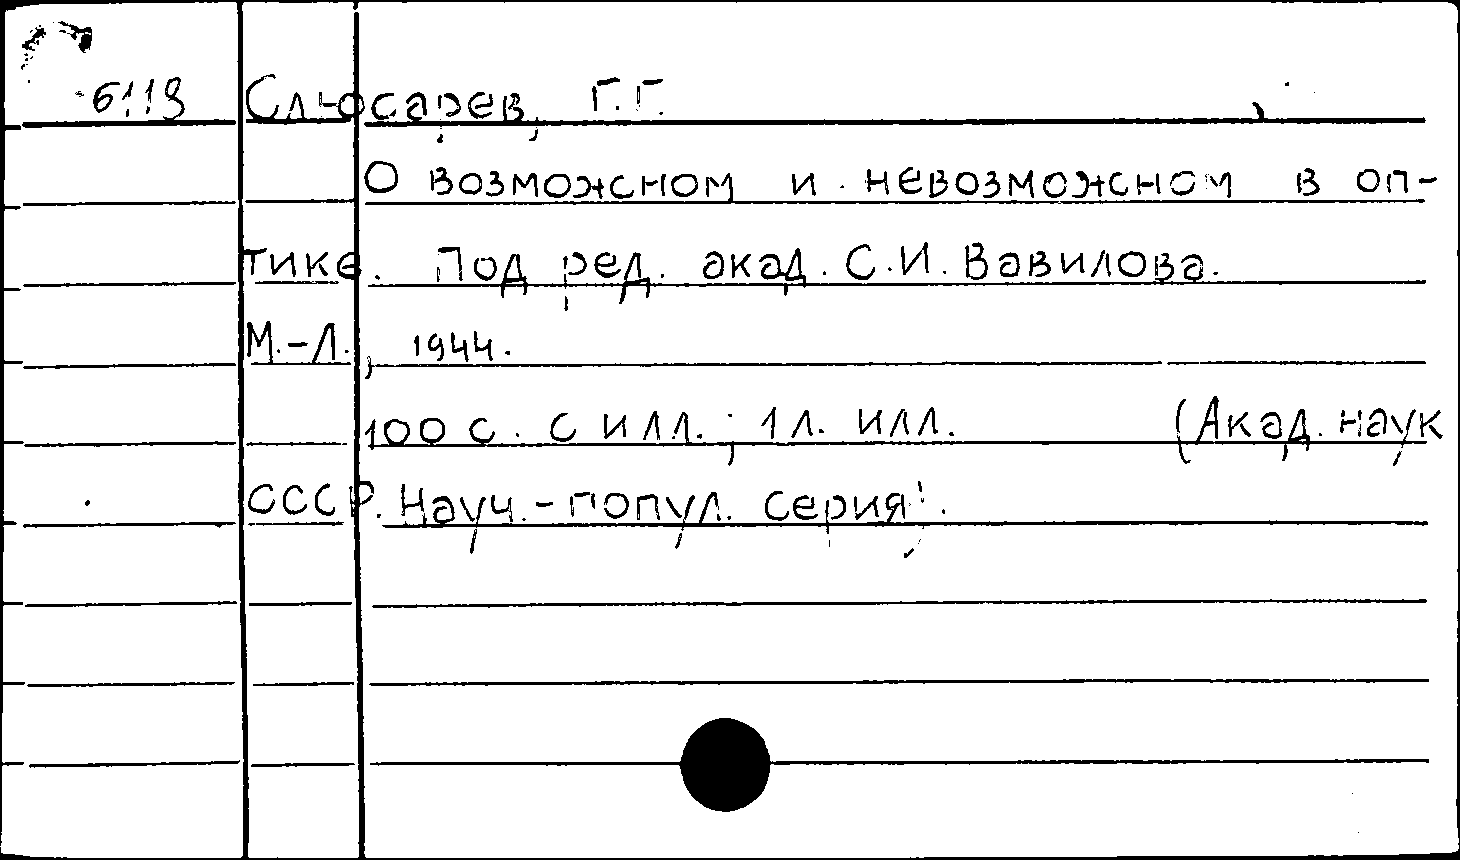 6119 Слюсарев, Г.Г.
О возможном и невозможном в оп-
тике. Под ред. акад. С.И. Вавилова.
М.-Л., 1944.
100 с. с илл.; 1 л. илл. (Акад. наук
СССР. Науч.-попул. серия).